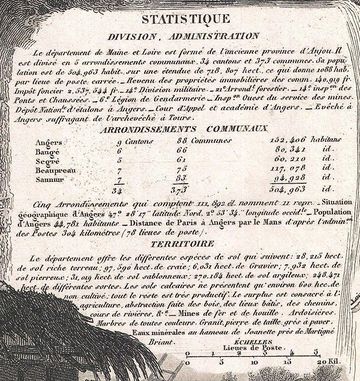 STATISTIQUE
DIVISION, ADMINISTRATION
Le département de Maine et Loire est formé de l'ancienne province d'Anjou. Il
est divisé en 5 arrondissements communaux, 34 cantons et 373 communes. Sa popu-
lation est de 504,963 habit. sur une étendue de 718,807 hect. ce qui donne 1088 hab.
par lieue de poste, carrée. Revenu des propriétés immobilières des coun. 140,919 fr.
Impôt foncier 2,537,544 fr. 14e Division militaire. 21e Arrondt. forestier. 14e inspon. des
Ponts et Chaussées. 6e Légion de Gendarmerie. Inspon. Ouest du service des mines.
Dépôt Nation. d'étalons à Angers. Cour d'Appel et académie d'Angers. Evêché à
Angers suffragant de l'archevêché à Tours.
ARRONDISSEMENTS COMMUNAUX
Angers 9 Cantons 88 Communes 152,406 habitans
Baugé 6 66 80,341 id.
Segré 5 61 60,210 id.
Beaupreau 7 75 117,078 id.
Saumur 7 83 94,928 id.
34 373 504,963 id.
Cinq Arrondissements qui comptent 111,892 él. nomment 11 repr. Situation
géographique d'Angers 47° 28' 17" latitude Nord. 2° 53' 34" longitude occidle. Population
d'Angers 44,781 habitants. Distance de Paris à Angers par le Mans d'après l'admon.
des Postes 304 kilomètres / 78 lieues de poste /.
TERRITOIRE
Le département offre les différentes espèces de sol qui suivent: 28,215 hect.
de sol riche terreau; 97,690 hect. de craie; 6,631 hect. de Gravier; 7,932 hect. de
sol pierreux; hect. de sol sablonneux; 270,184 hect. de sol argileux; 248,471
hect. de différentes sortes. Les sols calcaires ne présentent qu'environ 600 hec. de
non cultivé; tout le reste est très productif. Le surplus est consacré à l'
agriculture, abstraction faite des bois, des lieux bâtis, des chemins,
cours de rivières, &a. Mines de fer et de houille. Ardoisières.
Marbres de toutes couleurs. Granit, pierre de taille, grès à paver.
Eaux minérales au hameau de Jounette près de Martigné
Briant.
ÉCHELLES
Lieues de Poste.
5
0 5 10 15 20 Kil.